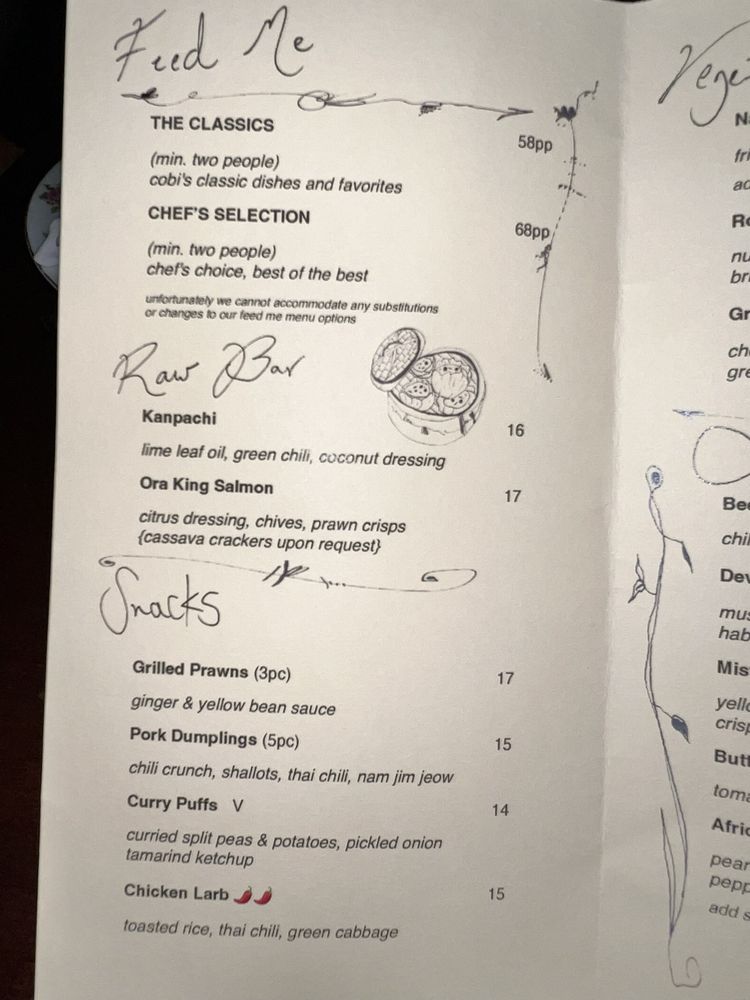 Feed Me
THE CLASSICS 58pp
(min. two people)
cobi's classic dishes and favorites
CHEF'S SELECTION 68pp
(min. two people)
chef's choice, best of the best
unfortunately we cannot accommodate any substitutions
or changes to our feed me menu options
Raw Bar
Kanpachi 16
lime leaf oil, green chili, coconut dressing
Ora King Salmon 17
citrus dressing, chives, prawn crisps
{cassava crackers upon request}
Snacks
Grilled Prawns (3pc) 17
ginger & yellow bean sauce
Pork Dumplings (5pc) 15
chili crunch, shallots, thai chili, nam jim jeow
Curry Puffs V 14
curried split peas & potatoes, pickled onion
tamarind ketchup
Chicken Larb 🌶️🌶️ 15
toasted rice, thai chili, green cabbage
add